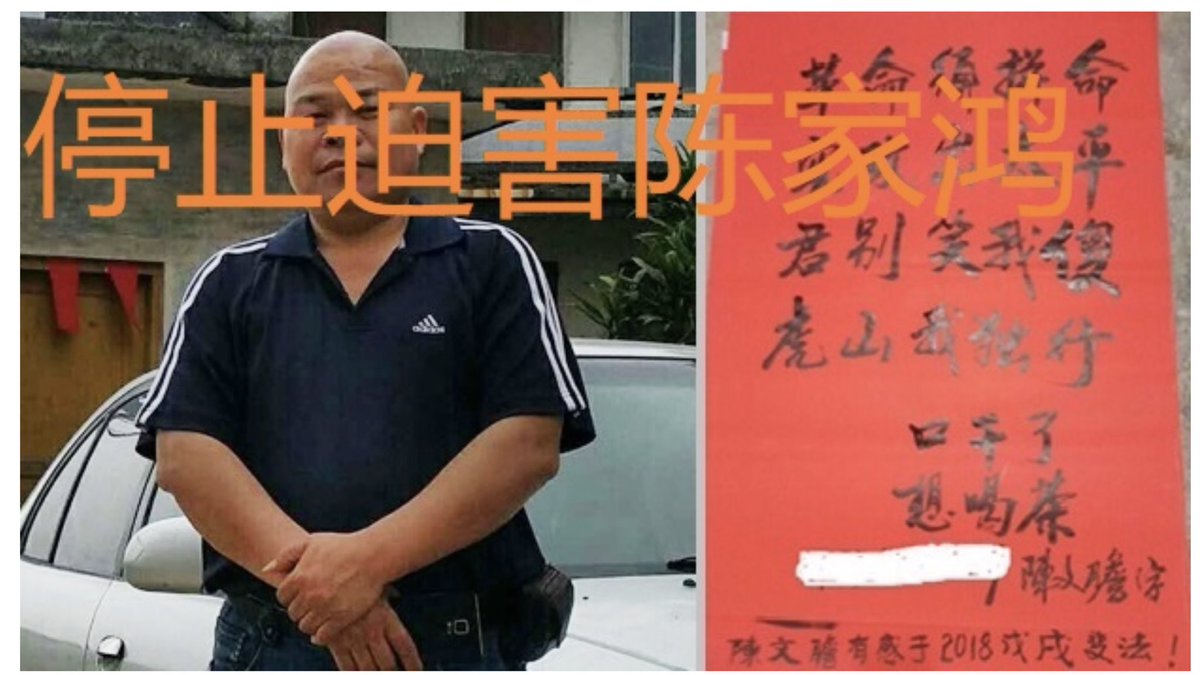 停止迫害陈家鸿
adidas
革命須拼命
平
君别笑我傻
虎山我独行
口干了
想喝茶
陳文
陳文有感于2018戊戌变法！